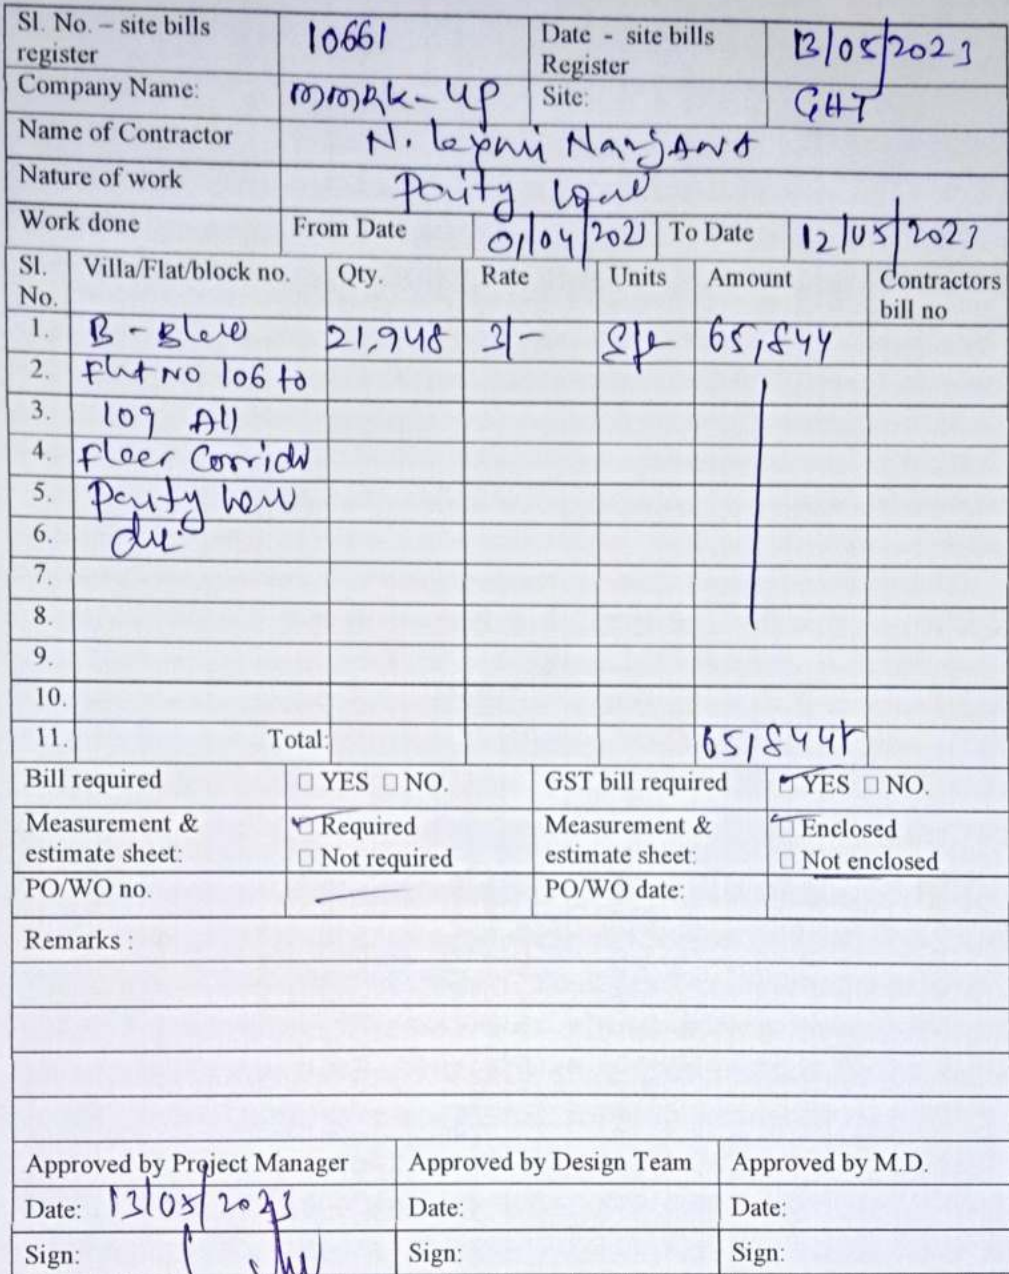 Sl. No. – site bills register 10661 Date - site bills Register 13/05/2023
Company Name: MMRK-UP Site: GHT
Name of Contractor N. Narayana
Nature of work
Work done From Date 01/04/2023 To Date 12/05/2023
Sl. No. Villa/Flat/block no. Qty. Rate Units Amount Contractors bill no
1. B - Block 21,948 3/- Sft 65,844
2. Flat NO 106 to
3. 109 All
4. Floor Corridor
5.
6.
7.
8.
9.
10.
11. Total: 65,844
Bill required □ YES □ NO. GST bill required □ YES □ NO.
Measurement & estimate sheet: □ Required □ Not required Measurement & estimate sheet: □ Enclosed □ Not enclosed
PO/WO no. PO/WO date:
Remarks :
Approved by Project Manager Approved by Design Team Approved by M.D.
Date: 13/05/2023 Date: Date:
Sign: Sign: Sign: